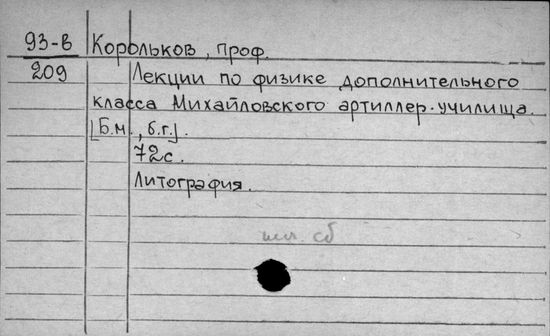 93-в Корольков, проф.
209 Лекции по физике дополнительного
класса Михайловского артиллер. училища.
[Б.м., б.г.].
72с.
Литография.
сб